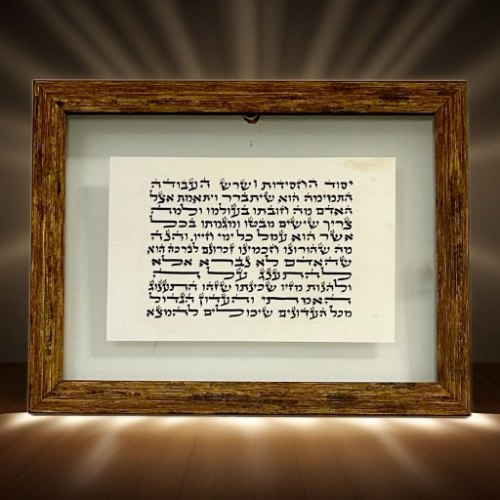 יסוד החסידות ושרש העבודה
התמימה הוא שיתברר ויתאמת אצל
האדם מה חובתו בעולמו ולמה
צריך שישים מבטו ומגמתו בכל
אשר הוא עמל כל ימי חייו, והנה
מה שהורונו חכמינו זכרונם לברכה הוא,
שהאדם לא נברא אלא
להתענג על ה׳
ולהנות מזיו שכינתו שזהו התענוג
האמתי והעדון הגדול
מכל העדונים שיכולים להמצא